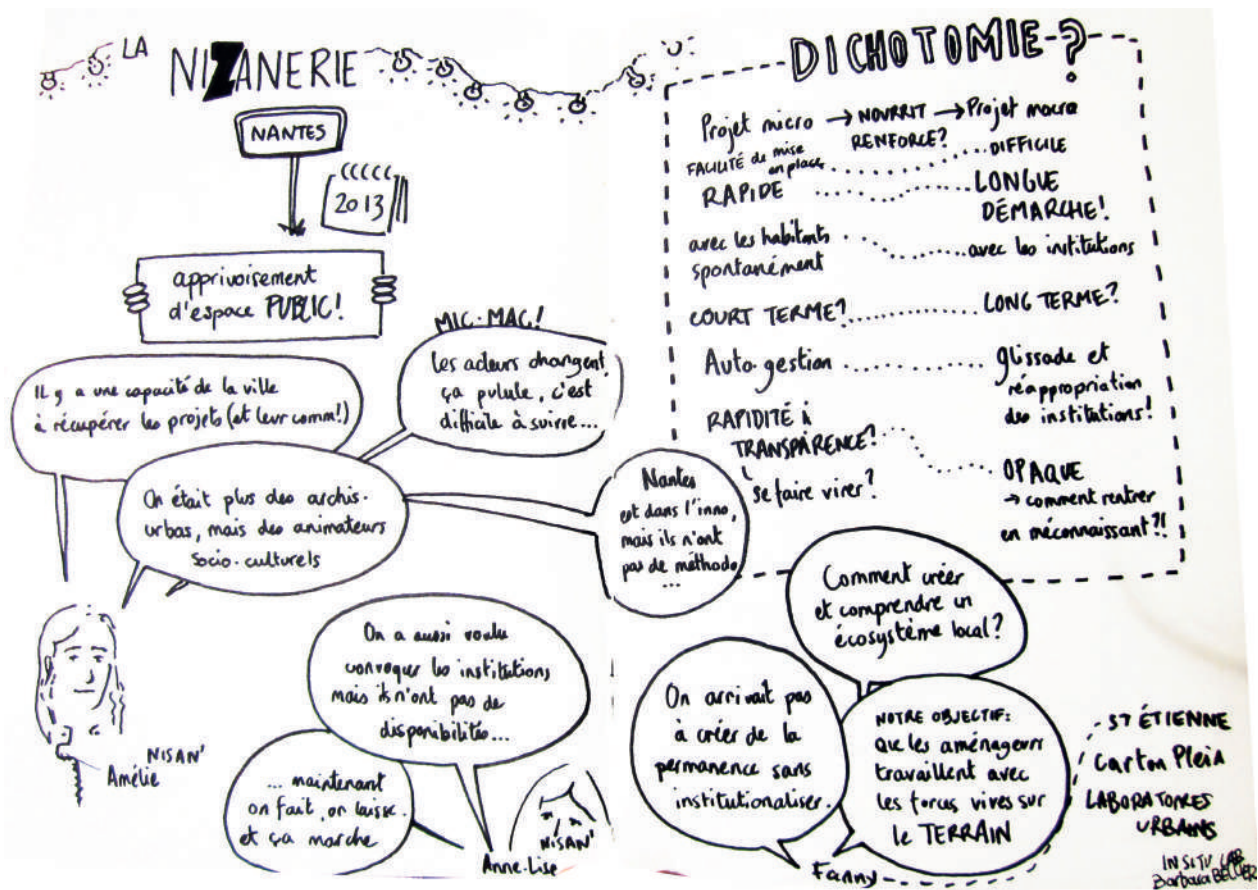 LA
NIZANERIE
NANTES
2013
apprivoisement
d'espace PUBLIC!
MIC-MAC!
Les acteurs changent,
ça pulule, c'est
difficile à suivre...
Il y a une capacité de la ville
à récupérer les projets (et leur comm!)
On était plus des archis-
urbas, mais des animateurs
socio-culturels
Nantes
est dans l'inno,
mais ils n'ont
pas de méthodo
...
NISAN'
Amélie
On a aussi voulu
convoquer les institutions
mais ils n'ont pas de
disponibilités...
... maintenant
on fait, on laisse.
et ça marche
NISAN'
Anne-Lise
DICHOTOMIE?
Projet micro → NOURRIT → Projet macro
RENFORCE?
FACILITÉ de mise
en place ...... DIFFICILE
RAPIDE ...... LONGUE
DÉMARCHE!
avec les habitants
spontanément ...... avec les institutions
COURT TERME? ...... LONG TERME?
Auto-gestion ...... glissade et
réappropriation
des institutions!
RAPIDITÉ
TRANSPARENCE?
se faire virer?
OPAQUE
→ comment rentrer
en méconnaissant?!
Comment créer
et comprendre un
écosystème local?
On arrivait pas
à créer de la
permanence sans
institutionaliser.
NOTRE OBJECTIF:
que les aménageurs
travaillent avec
les forces vives sur
le TERRAIN
Fanny
ST ÉTIENNE
Carton Plein
LABORATOIRES
URBAINS
IN SITU LAB
Barbara